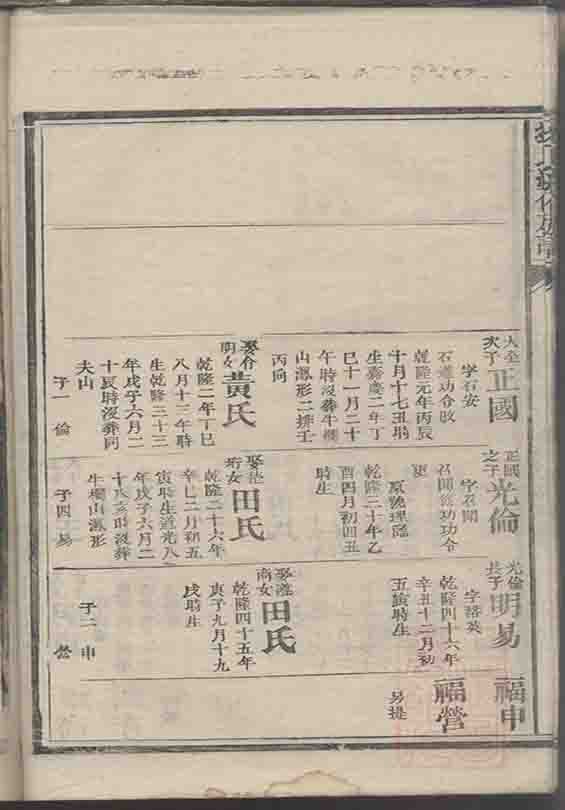 大奎
次子
正國
字石安
乾隆元年丙辰
十月十七丑時
生嘉慶二年丁
巳十一月二十
午時沒葬牛欄
山鳳形二排壬
丙向
娶介
明女
黃氏
乾隆二年丁巳
八月十三午時
生乾隆三十三
年戊子六月二
十辰時沒葬同
夫山
子一
倫
正國
之子
光倫
字召聞
吏
乾隆三十年乙
酉四月初四丑
時生
娶
女
田氏
乾隆二十六年
辛巳二月初五
寅時生道光八
年戊子六月二
十八亥時沒葬
牛欄山鳳形
子四
易
光倫
長子
明易
乾隆四十六年
辛丑十二月初
五寅時生
娶
商女
田氏
乾隆四十五年
庚子九月十九
戌時生
子二
申
營
福申
福營
易提